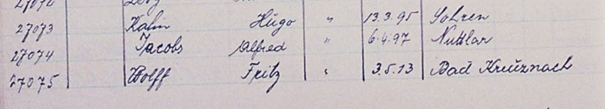 27072 Levy
27073 Kahn Hugo " 13.3.95 Sohren
27074 Jacobs Alfred " 6.4.97 Nuttlar
27075 Wolff Fritz " 3.5.13 Bad Kreuznach